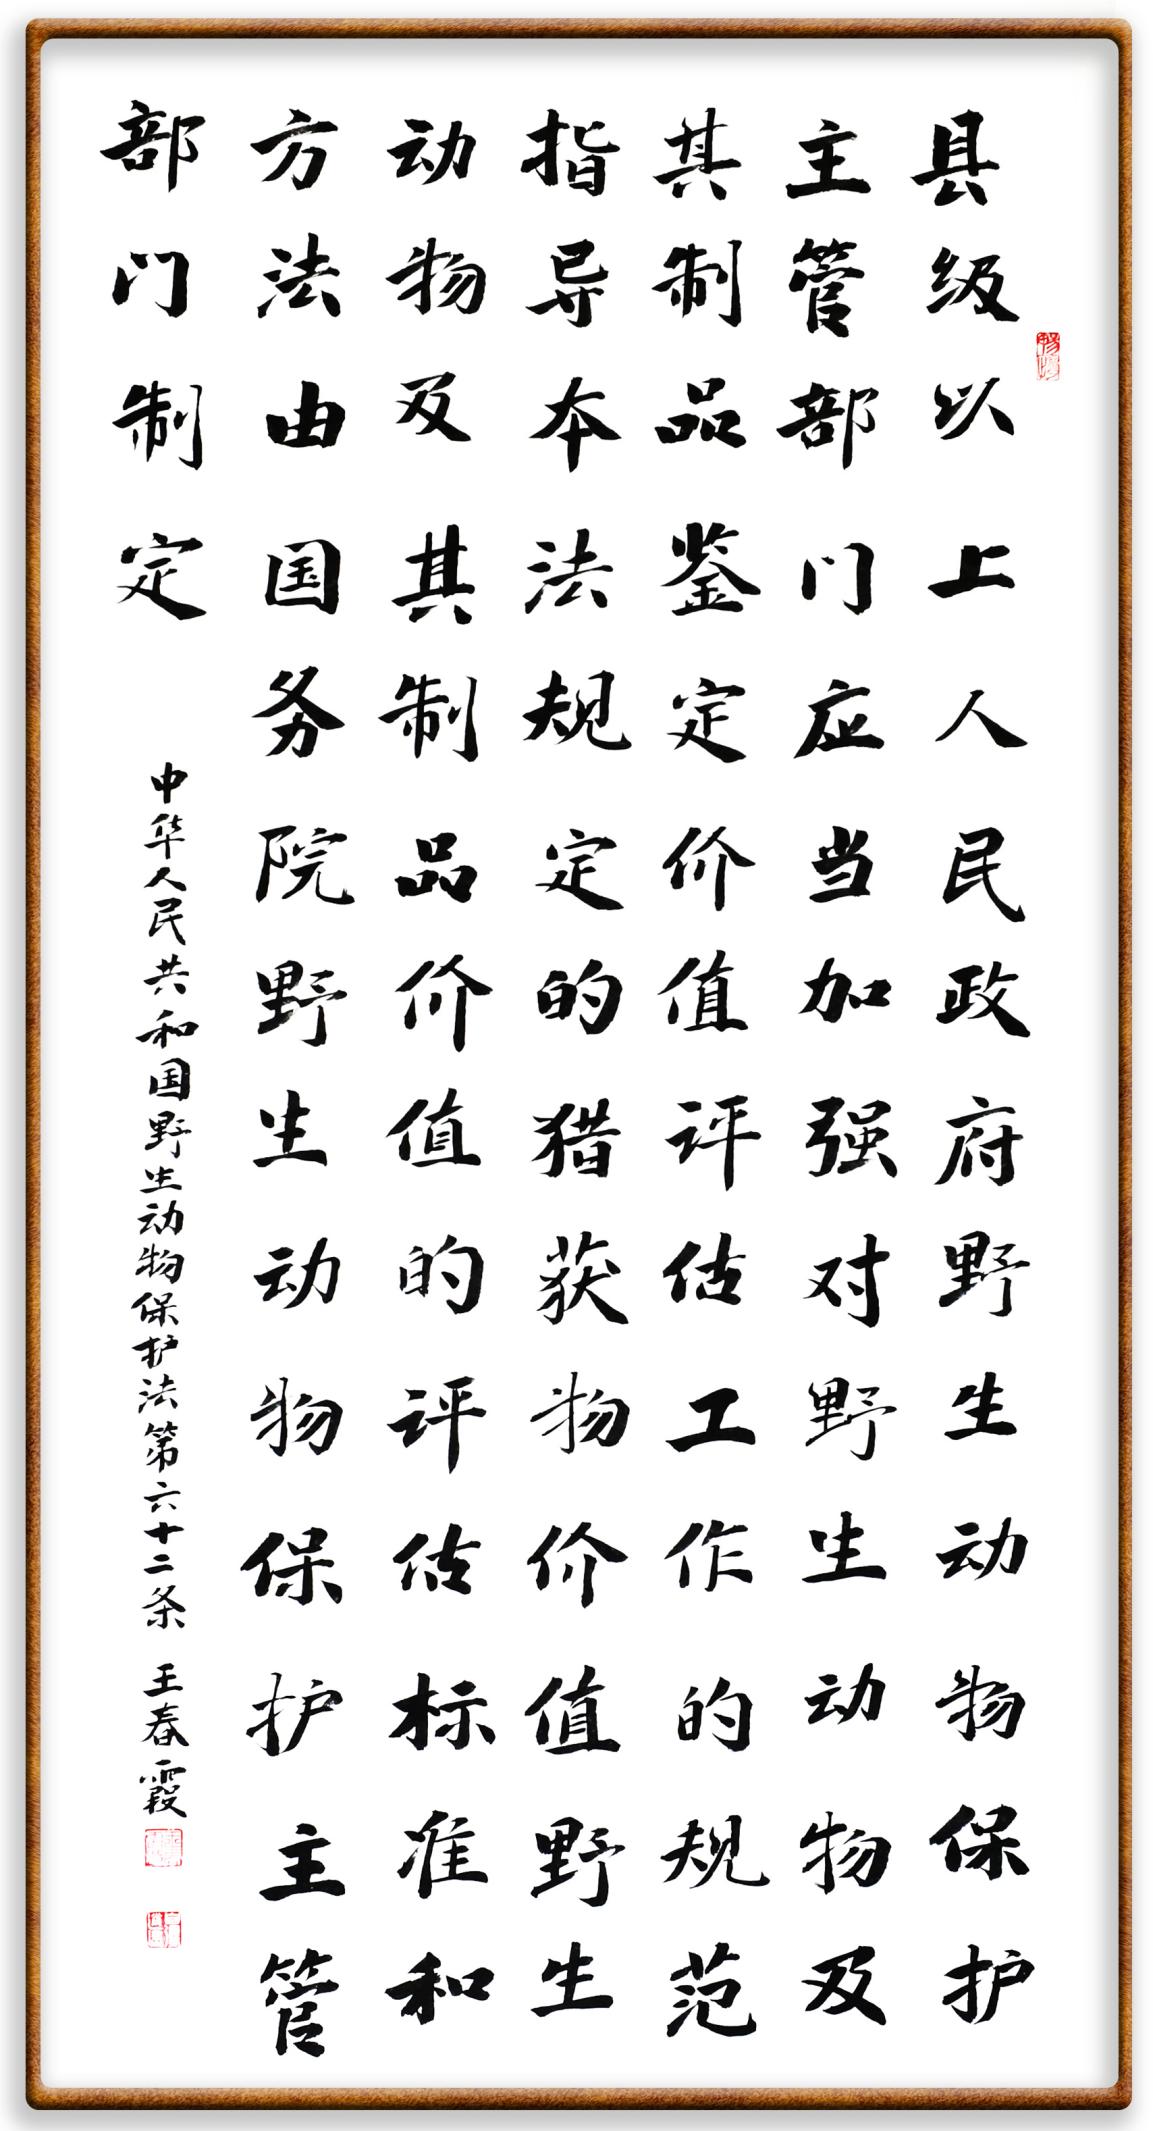 县级以上人民政府野生动物保护
主管部门应当加强对野生动物及
其制品鉴定价值评估工作的规范
指导本法规定的猎获物价值野生
动物及其制品价值的评估标准和
方法由国务院野生动物保护主管
部门制定
中华人民共和国野生动物保护法第六十二条 王春霞